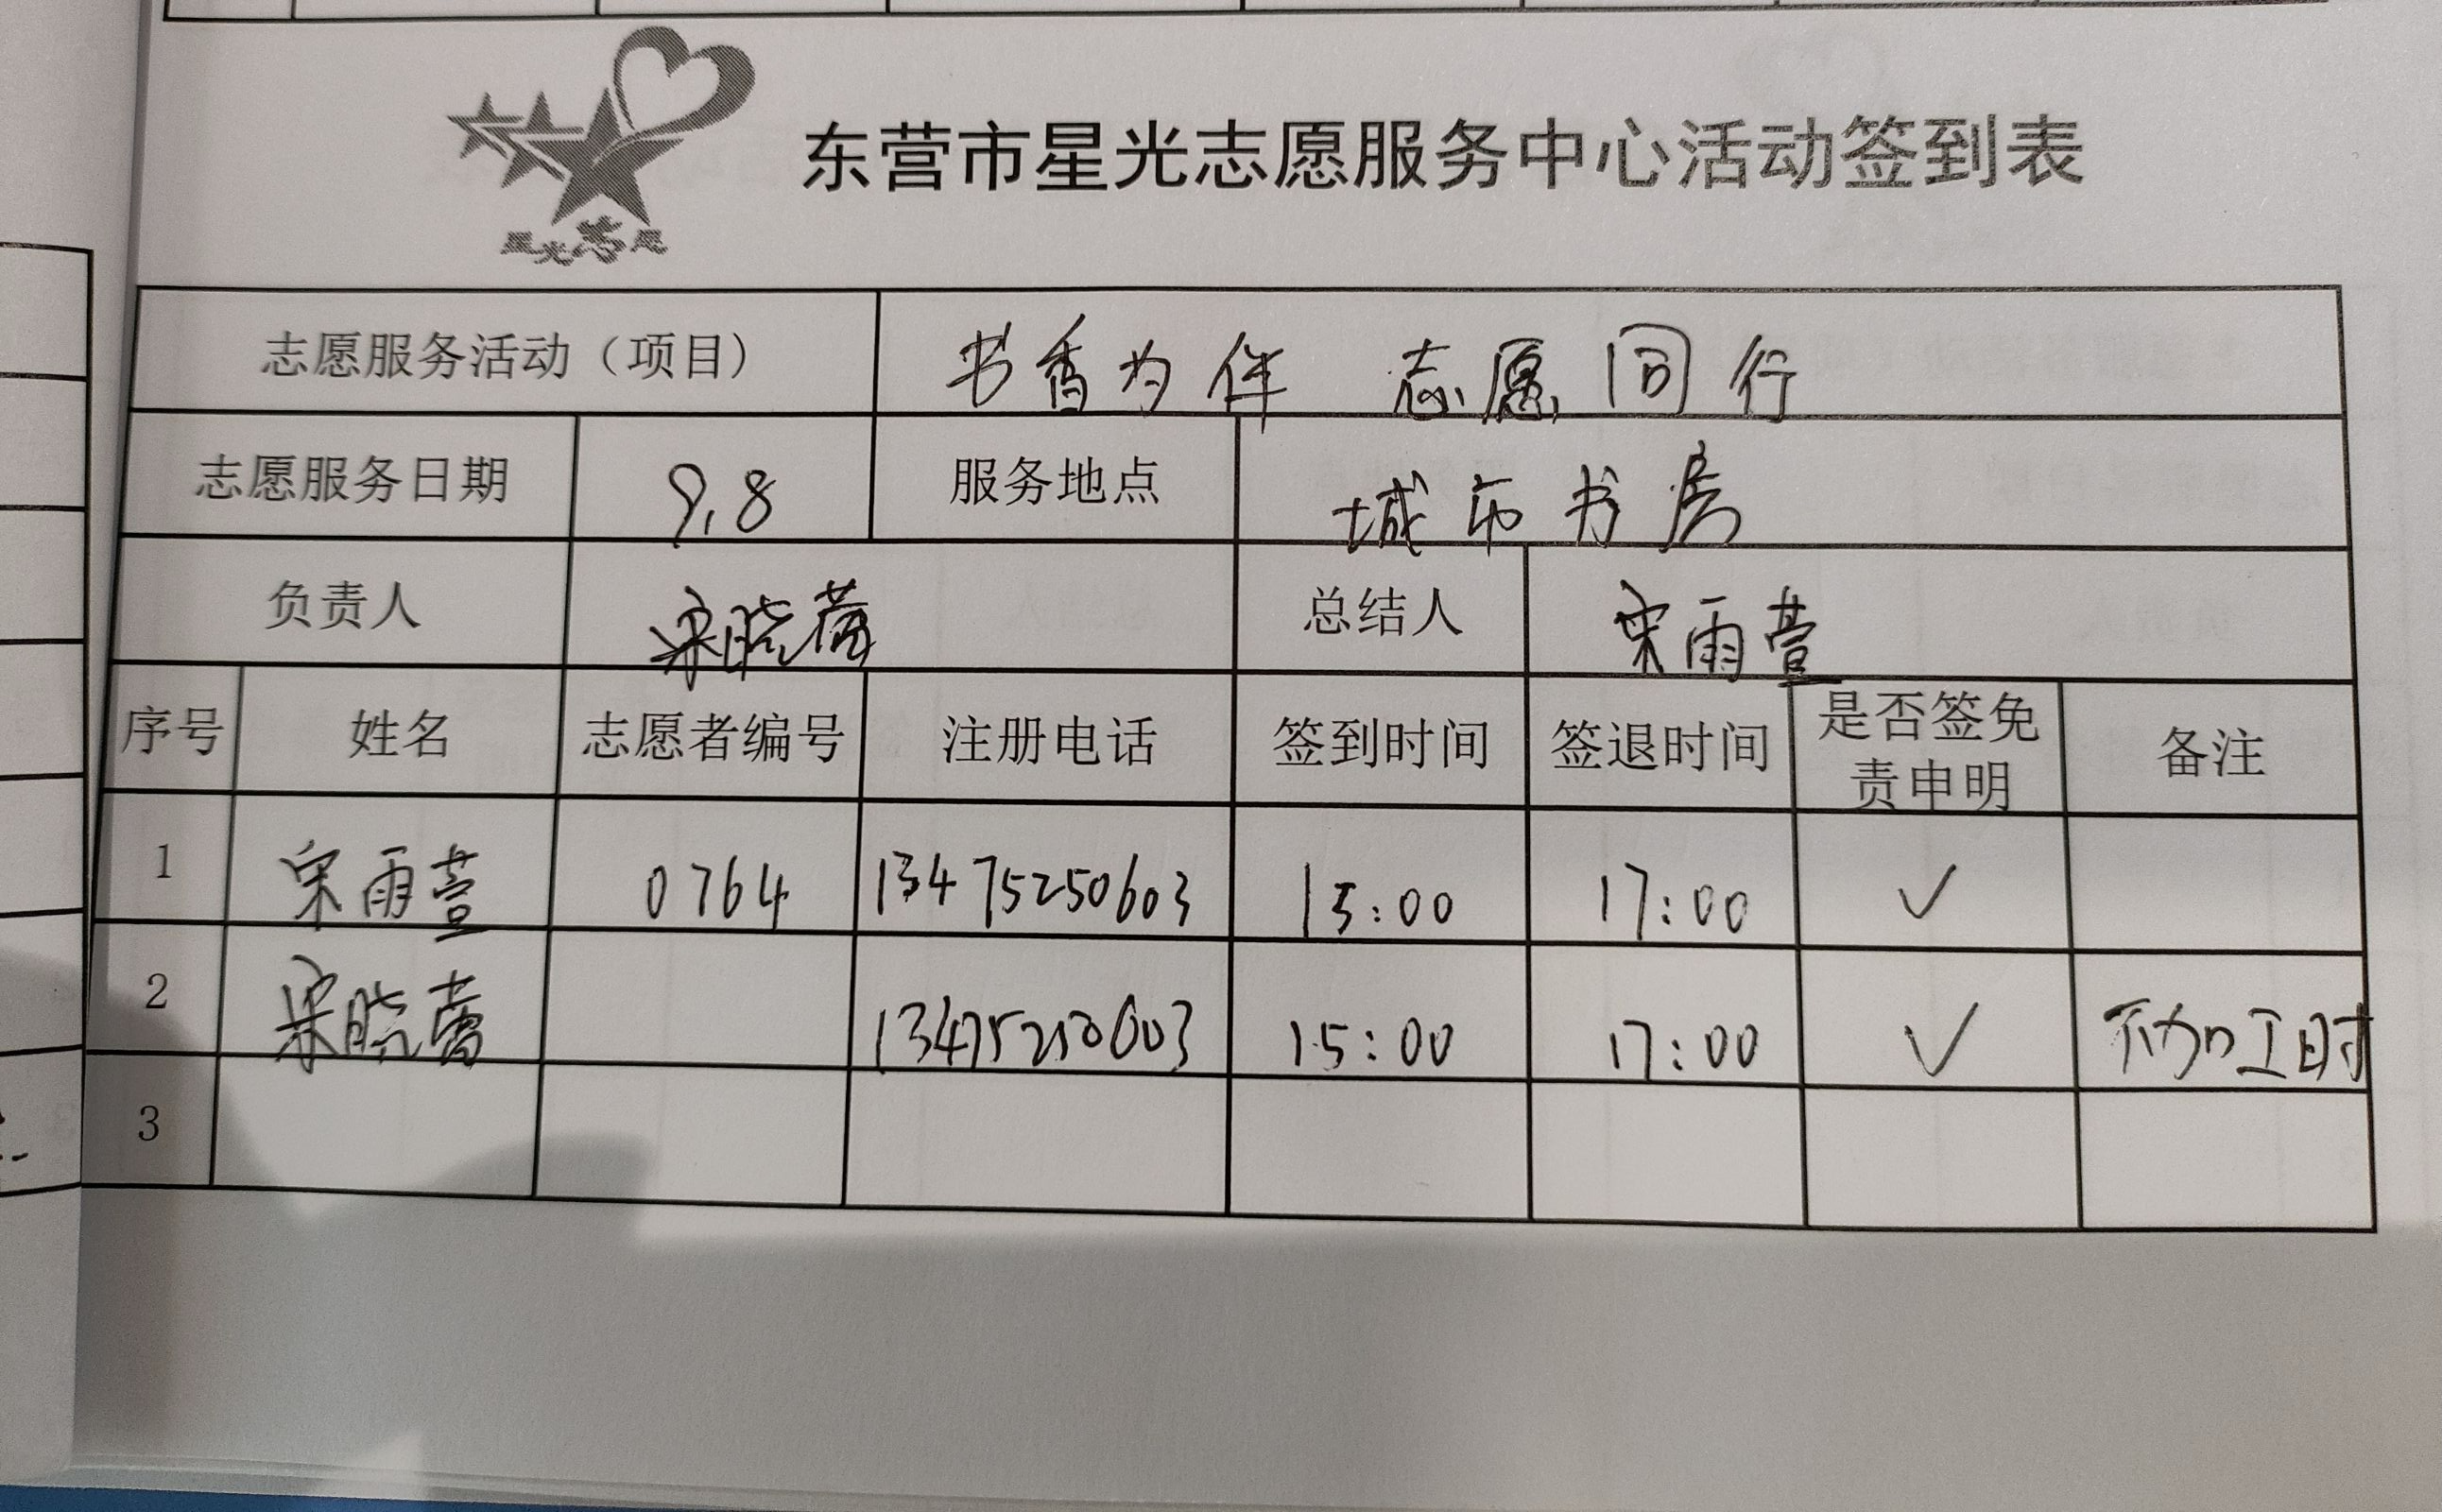 星光志愿
东营市星光志愿服务中心活动签到表
志愿服务活动（项目） 书香为伴 志愿同行
志愿服务日期 9.8 服务地点 城市书房
负责人 宋晓蕾 总结人 宋雨萱
序号 姓名 志愿者编号 注册电话 签到时间 签退时间 是否签免责申明 备注
1 宋雨萱 0764 13475250603 15:00 17:00 ✓
2 宋晓蕾 13475250603 15:00 17:00 ✓ 不加工时
3